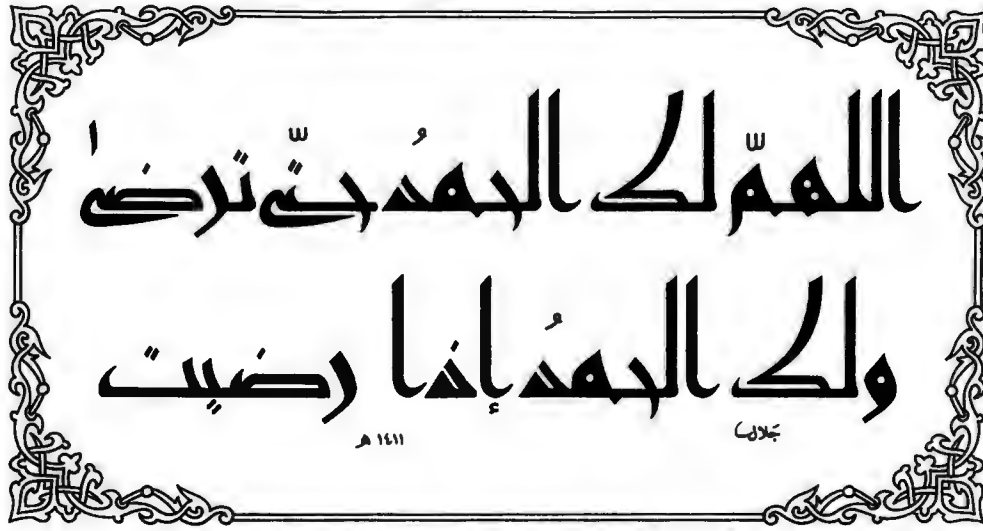 اللهمّ لك الحمدُ حتّى ترضى
ولك الحمدُ إذا رضيت
جلال ١٤١١ هـ